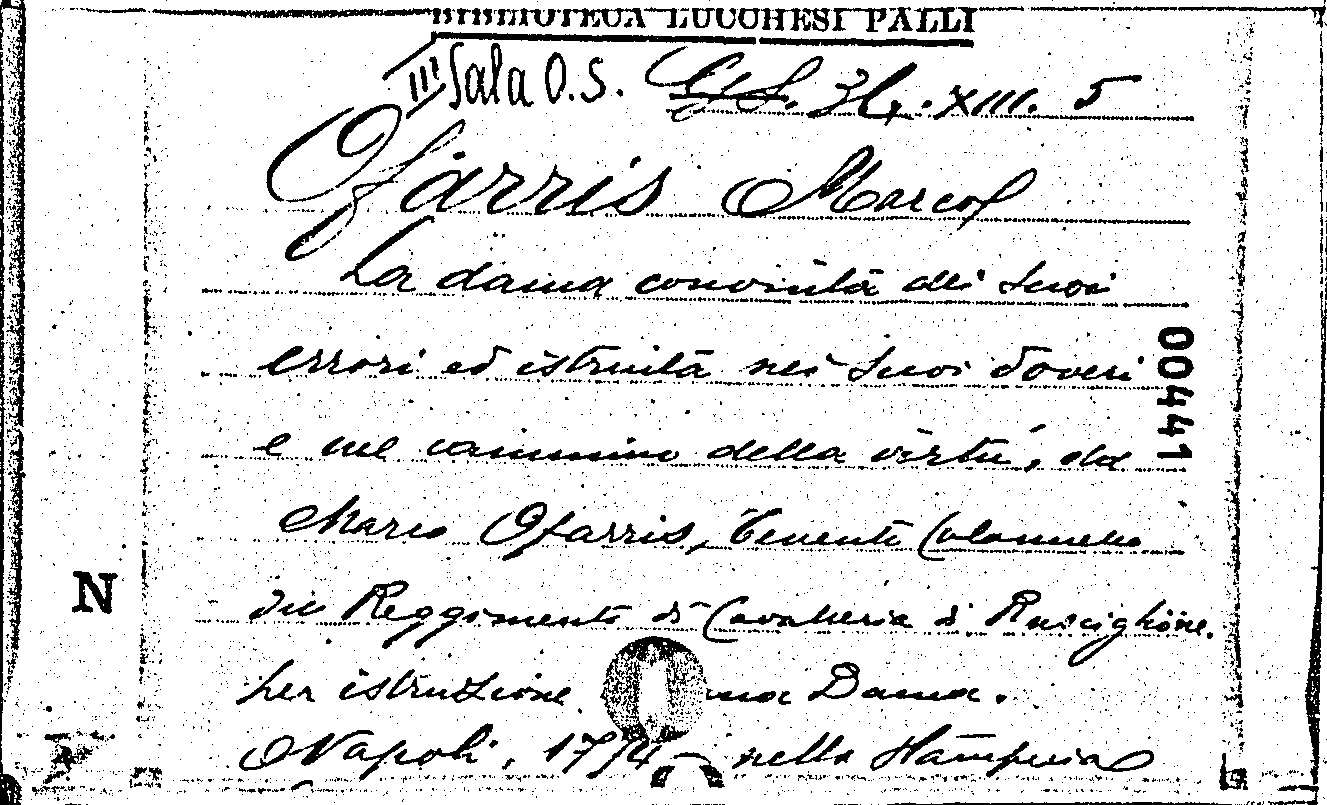 BIBLIOTECA LUCCHESI PALLI
III Sala O.S. XIII. 5
Ofarris Marco
La dama convinta dei suoi
errori ed istruita nei suoi doveri
e nel cammino della virtù, da
Marco Ofarris, Tenente Colonnello
del Reggimento di Cavalleria di Rusciglione.
per istruzione una Dama.
Napoli, 1794 nella Stamperia
00441
N